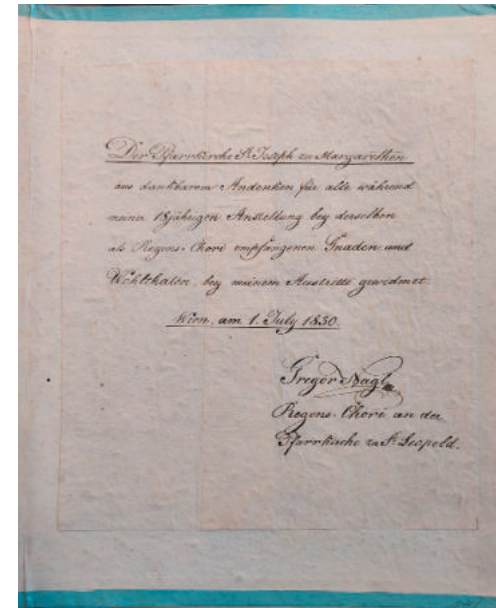 Der Pfarrkirche St. Joseph zu Margarethen
aus dankbarem Andenken für alle während
meiner 18jährigen Anstellung bey derselben
als Regens-Chori empfangenen Gnaden und
Wohlthaten, bey meinem Austritte gewidmet.
Wien, am 1. July 1830.
Gregor Nagl
Regens-Chori an der
Pfarrkirche zu St. Leopold.